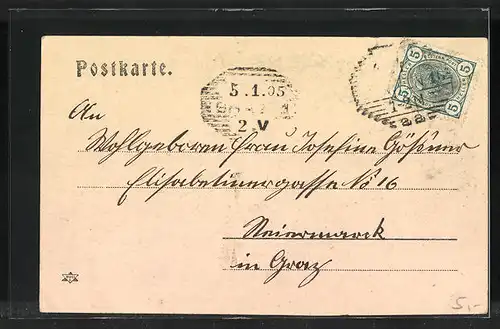 Postkarte.
5
5
5
5
5.1.05
2 V
An
Wohlgeboren Frau Josefine Gößner
Elisabetinergasse No 16
Steiermarck
in Graz
5,-